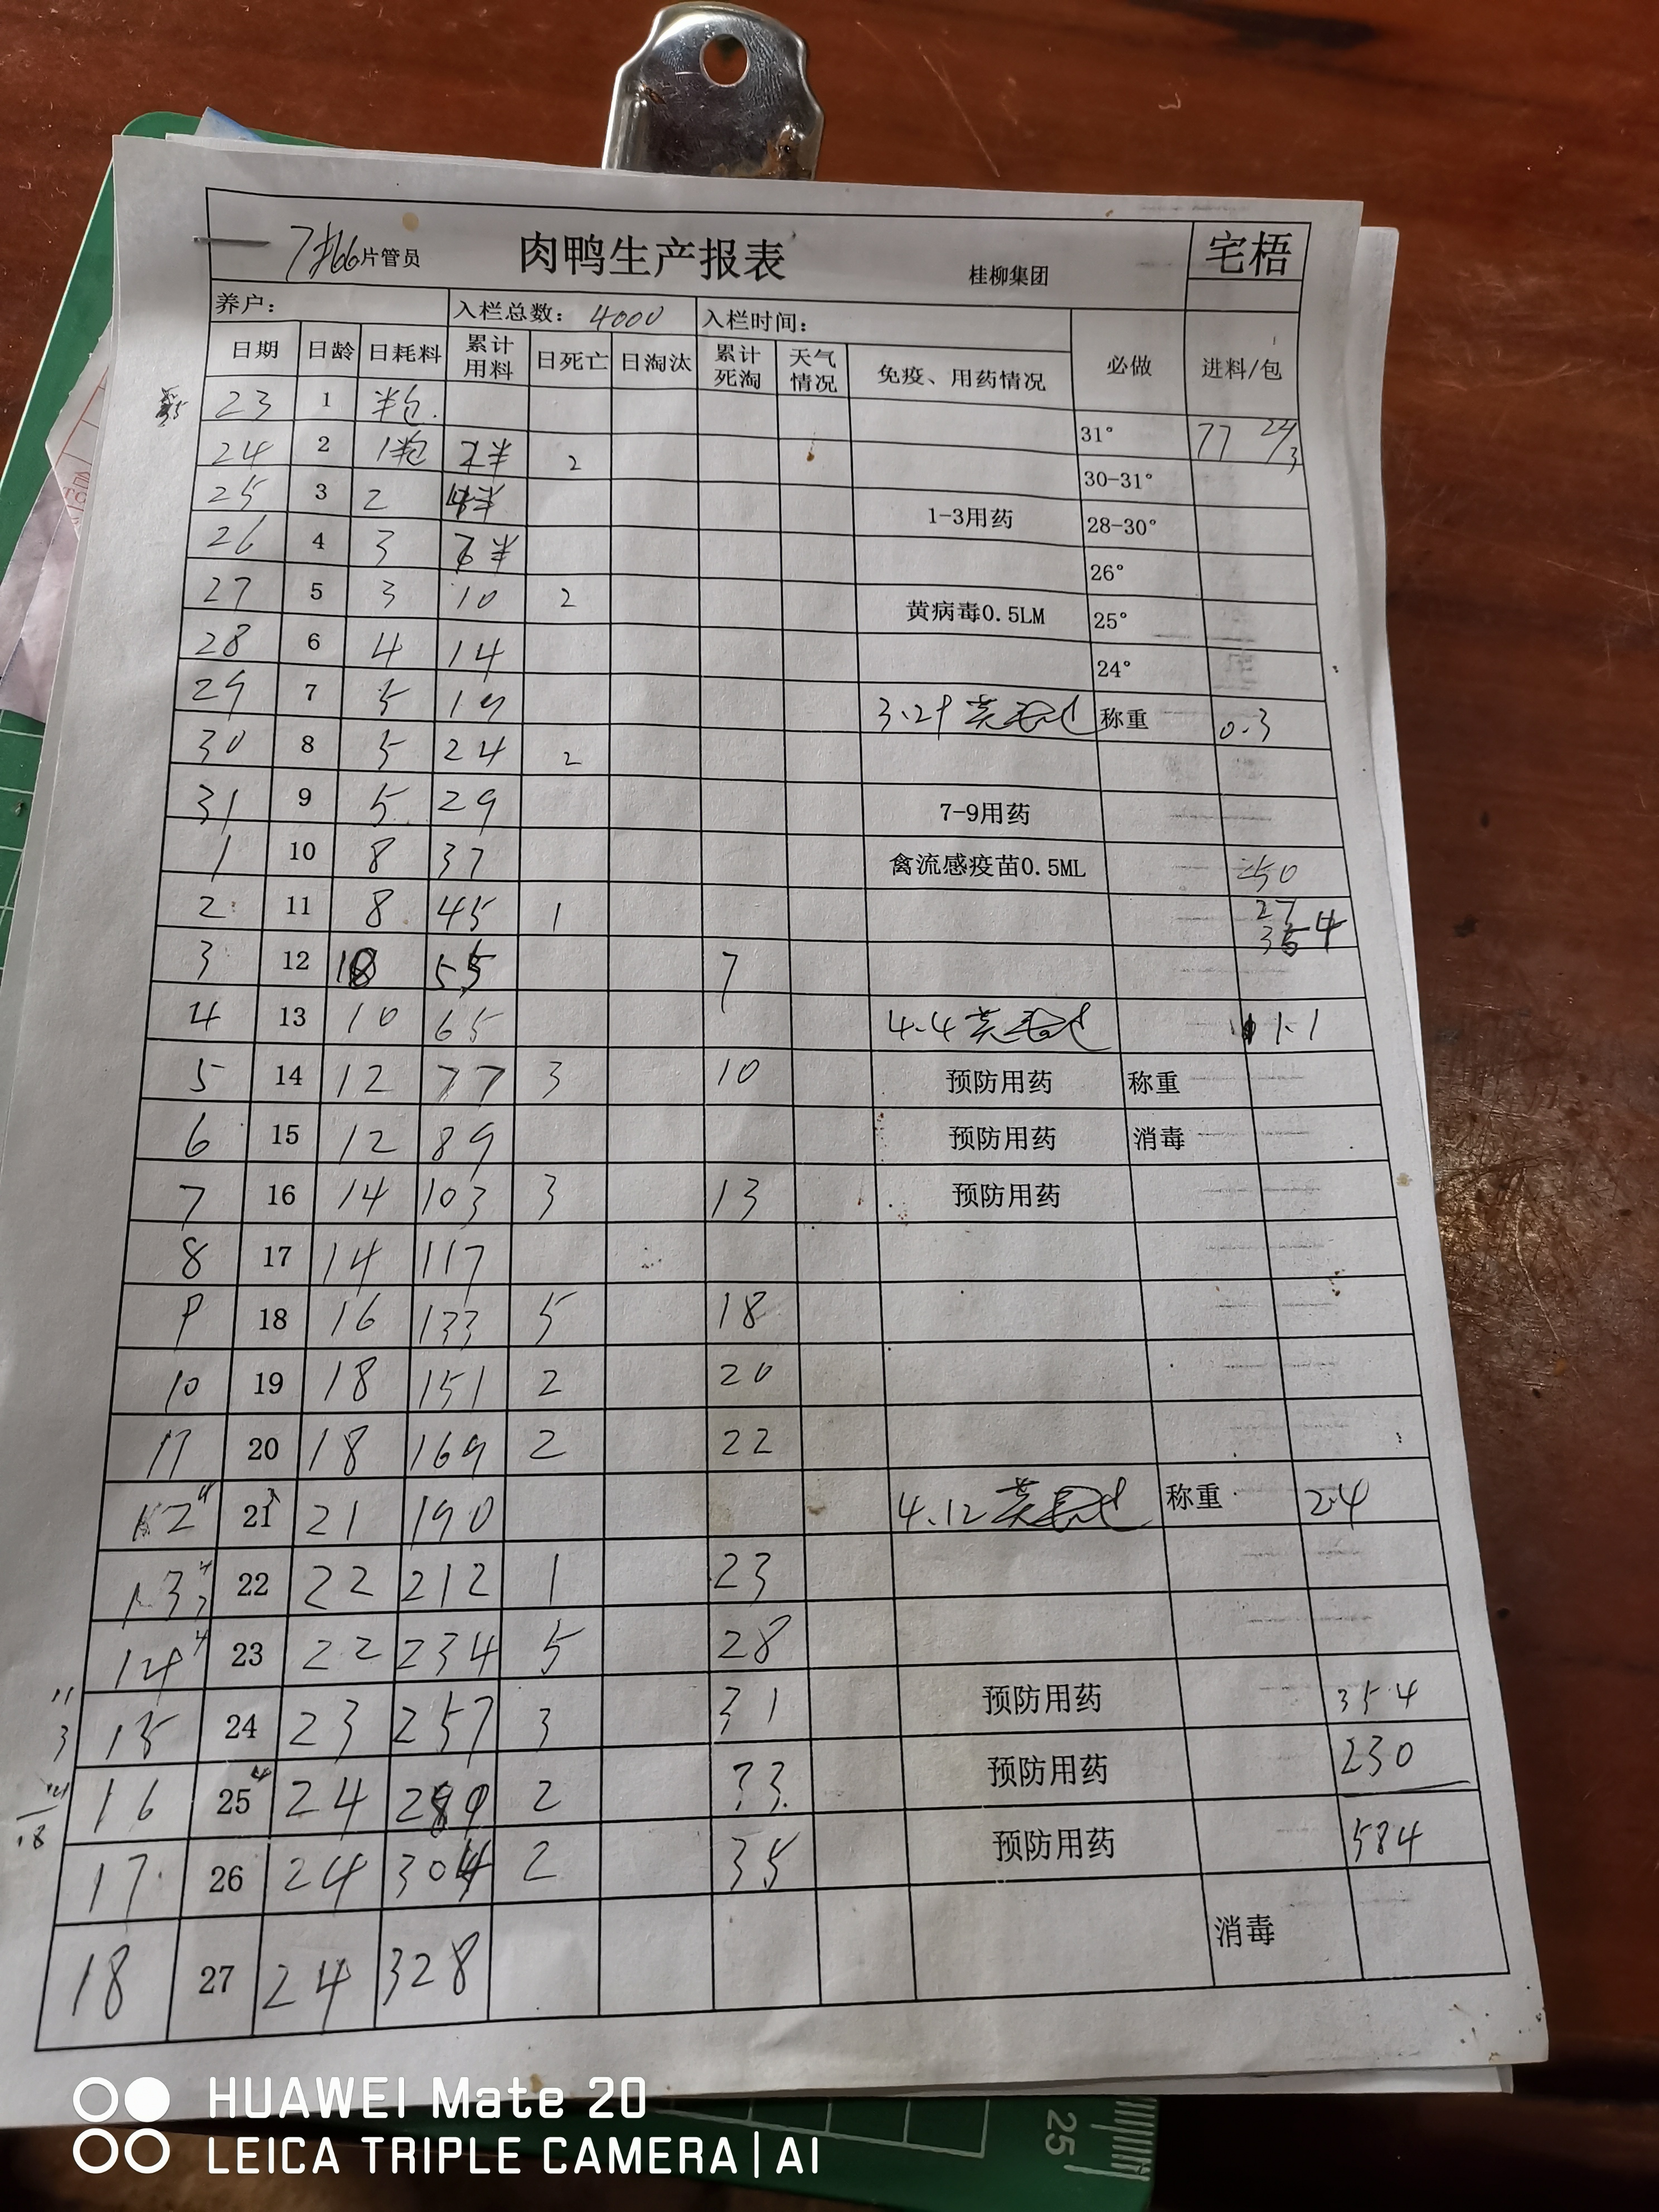 7#66 片管员 肉鸭生产报表 桂柳集团 宅梧
养户: 入栏总数: 4000 入栏时间:
日期 日龄 日耗料 累计用料 日死亡 日淘汰 累计死淘 天气情况 免疫、用药情况 必做 进料/包
23 1 半包. 31° 77 29/3
24 2 1半包 2半 2 30-31°
25 3 2 4半 1-3用药 28-30°
26 4 3 7半 26°
27 5 3 10 2 黄病毒0.5LM 25°
28 6 4 14 24°
29 7 5 19 3.29 称重 0.3
30 8 5 24 2
31 9 5 29 7-9用药
1 10 8 37 禽流感疫苗0.5ML 50
2 11 8 45 1 27
3 12 10 55 7
4 13 10 65 4.4 1.1
5 14 12 77 3 10 预防用药 称重
6 15 12 89 预防用药 消毒
7 16 14 103 3 13 预防用药
8 17 14 117
9 18 16 133 5 18
10 19 18 151 2 20
11 20 18 169 2 22
12 21 21 190 4.12 称重 2.4
13 22 22 212 1 23
14 23 22 234 5 28
15 24 23 257 3 31 预防用药 354
16 25 24 280 2 33 预防用药 230
17 26 24 304 2 35 预防用药 584
18 27 24 328 消毒
11
3
18
25
HUAWEI Mate 20
LEICA TRIPLE CAMERA | AI